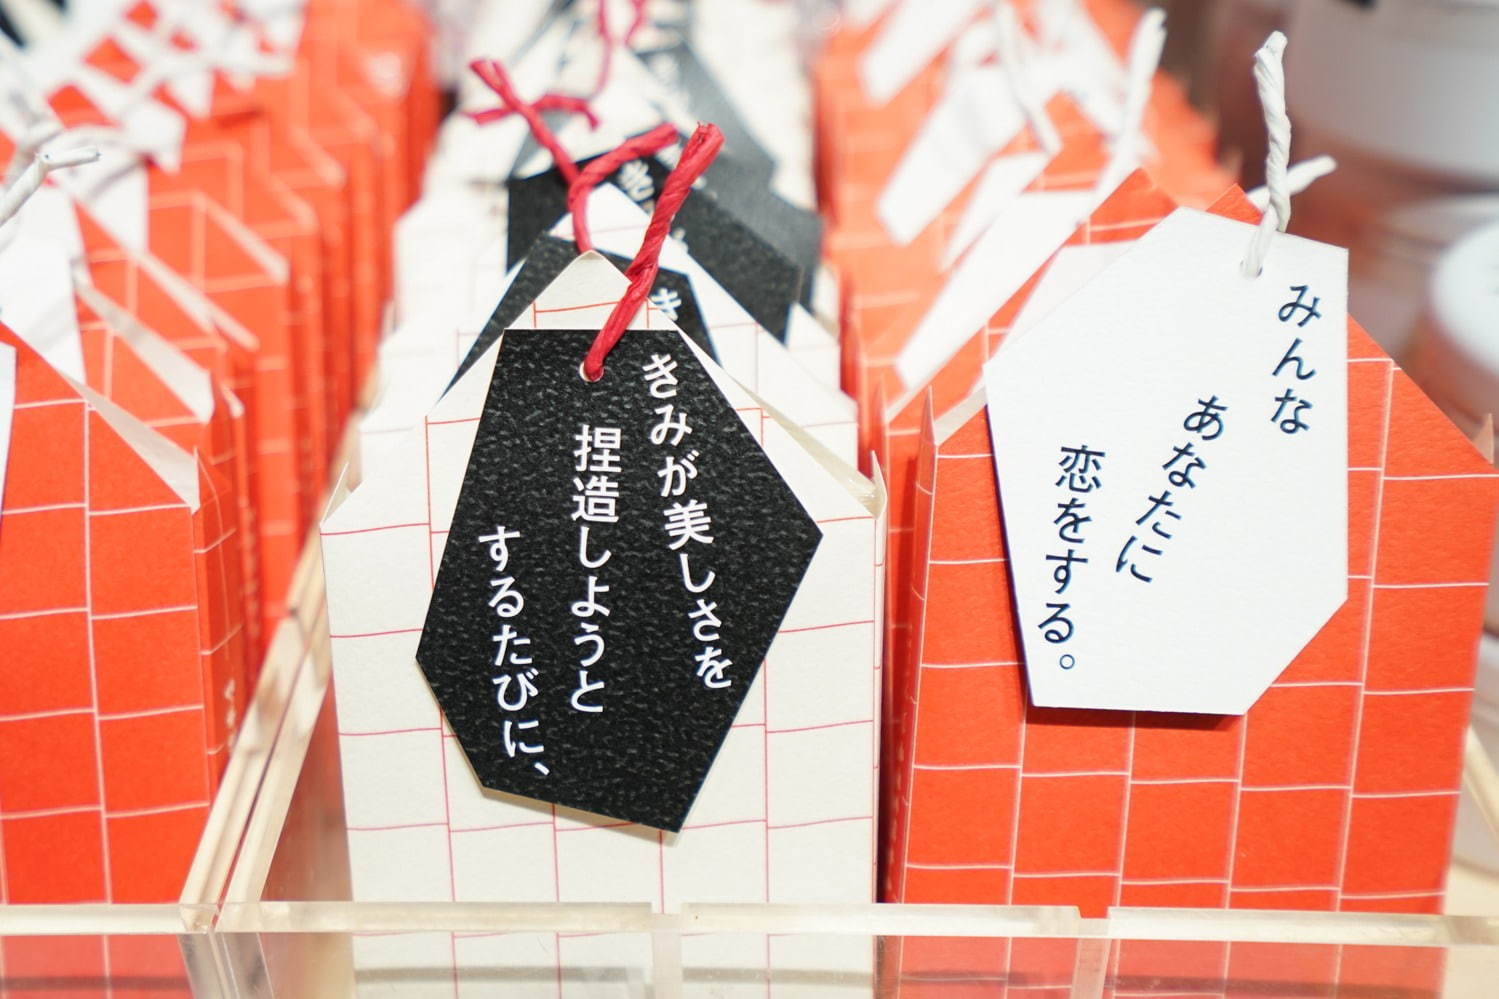 きみが美しさを
捏造しようと
するたびに、
みんな
あなたに
恋をする。
き
き